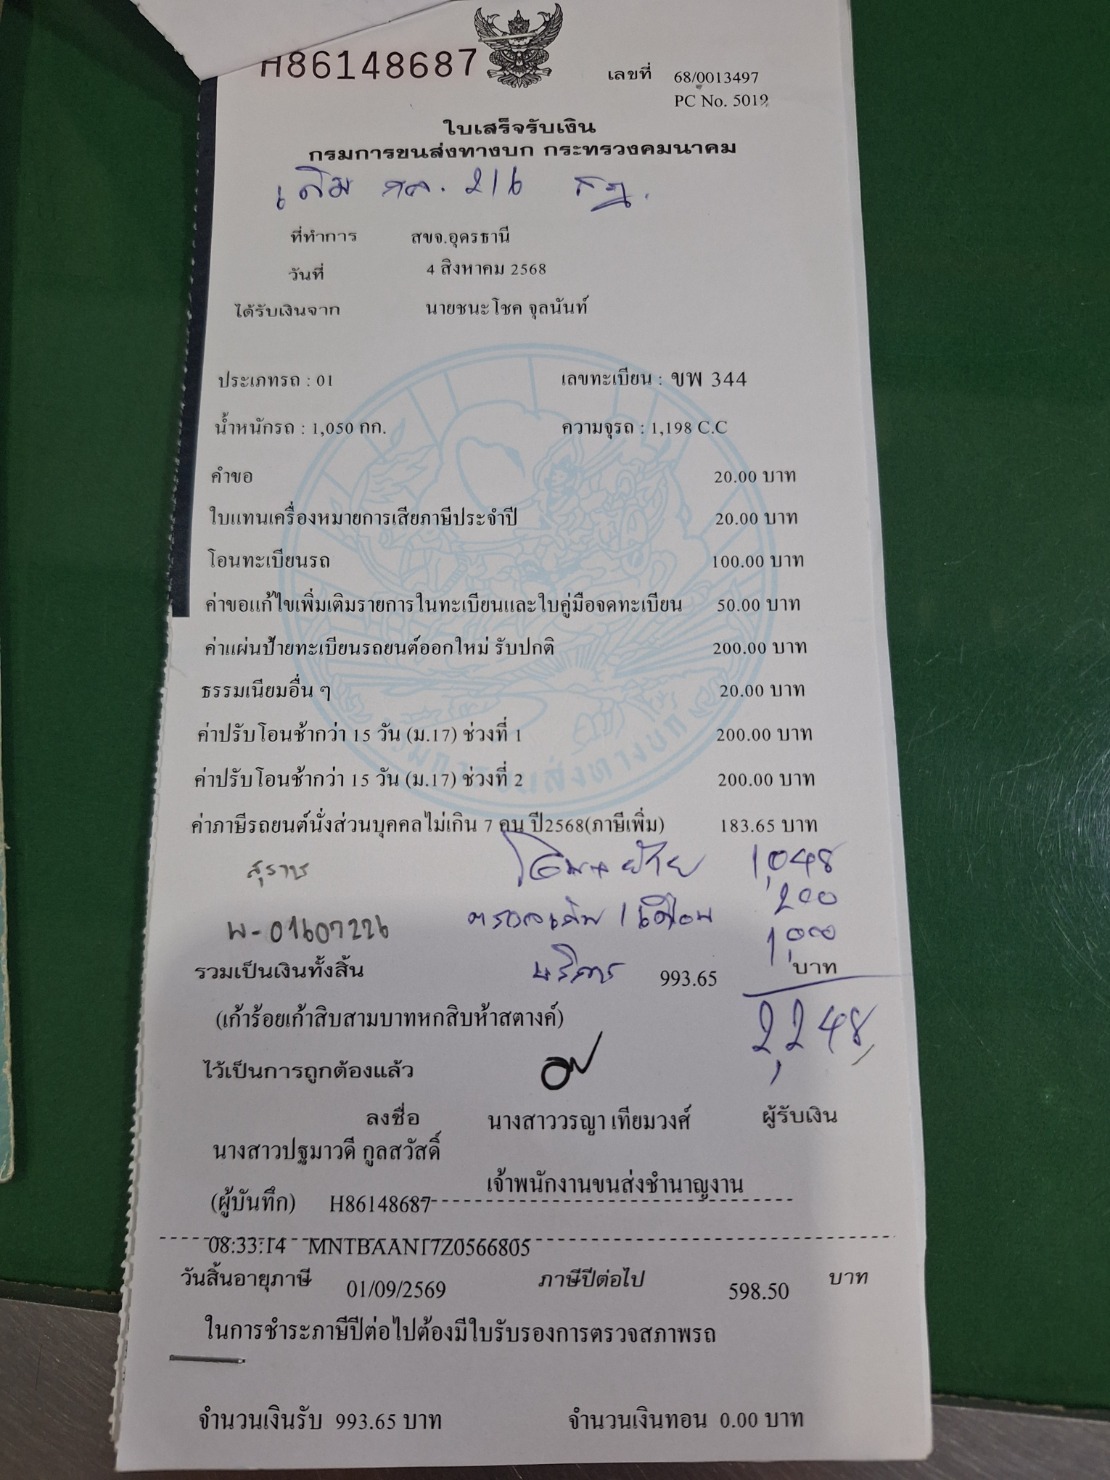 H86148687
เลขที่ 68/0013497
PC No. 5019
ใบเสร็จรับเงิน
กรมการขนส่งทางบก กระทรวงคมนาคม
เดิม 216
ที่ทำการ สขจ.อุดรธานี
วันที่ 4 สิงหาคม 2568
ได้รับเงินจาก นายชนะโชค จุลนันท์
ประเภทรถ : 01 เลขทะเบียน : ขพ 344
น้ำหนักรถ : 1,050 กก. ความจุรถ : 1,198 C.C
คำขอ 20.00 บาท
ใบแทนเครื่องหมายการเสียภาษีประจำปี 20.00 บาท
โอนทะเบียนรถ 100.00 บาท
ค่าขอแก้ไขเพิ่มเติมรายการในทะเบียนและใบคู่มือจดทะเบียน 50.00 บาท
ค่าแผ่นป้ายทะเบียนรถยนต์ออกใหม่ รับปกติ 200.00 บาท
ธรรมเนียมอื่น ๆ 20.00 บาท
ค่าปรับโอนช้ากว่า 15 วัน (ม.17) ช่วงที่ 1 200.00 บาท
ค่าปรับโอนช้ากว่า 15 วัน (ม.17) ช่วงที่ 2 200.00 บาท
ค่าภาษีรถยนต์นั่งส่วนบุคคลไม่เกิน 7 คน ปี2568(ภาษีเพิ่ม) 183.65 บาท
สุราช 1,048
200
พ-01607226 1,000
รวมเป็นเงินทั้งสิ้น บริการ 993.65 บาท
(เก้าร้อยเก้าสิบสามบาทหกสิบห้าสตางค์) 2,248
ไว้เป็นการถูกต้องแล้ว
ลงชื่อ นางสาววรญา เทียมวงศ์ ผู้รับเงิน
นางสาวปฐมาวดี กูลสวัสดิ์
เจ้าพนักงานขนส่งชำนาญงาน
(ผู้บันทึก) H86148687
08:33:14 MNTBAAN17Z0566805
วันสิ้นอายุภาษี 01/09/2569 ภาษีปีต่อไป 598.50 บาท
ในการชำระภาษีปีต่อไปต้องมีใบรับรองการตรวจสภาพรถ
จำนวนเงินรับ 993.65 บาท จำนวนเงินทอน 0.00 บาท